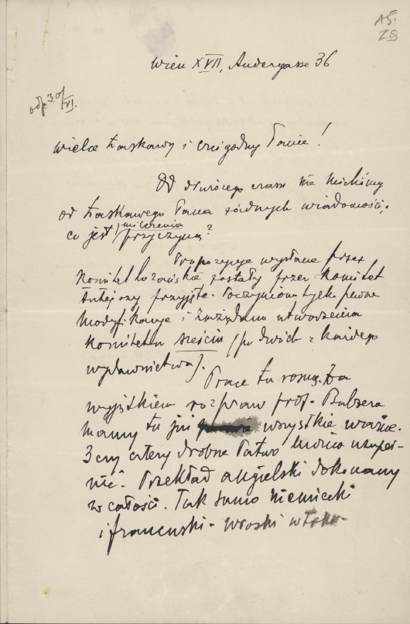 A5.
28
Wien XVII, Andergasse 36
odp. 30/VI.
Wielce Łaskawy i czcigodny Panie!
Od dłuższego czasu nie mieliśmy
od Łaskawego Pana żadnych wiadomości;
co jest milczenia przyczyną?
Propozycje wysłane przez
Komitet Lozański zostały przez Komitet
tutejszy przyjęte. Poczyniono tylko pewne
modyfikacje i zażądano utworzenia
Komitetu sześciu (po dwóch z każdego
wydawnictwa).
Prace tu rosną. Za
wyjątkiem rozpraw prof. Balzera
mamy tu już wszystkie ważne.
3 czy cztery drobne łatwo można uzupeł-
nić. Przekład angielski dokonany
w całości. Tak samo niemiecki
i francuski. włoski w